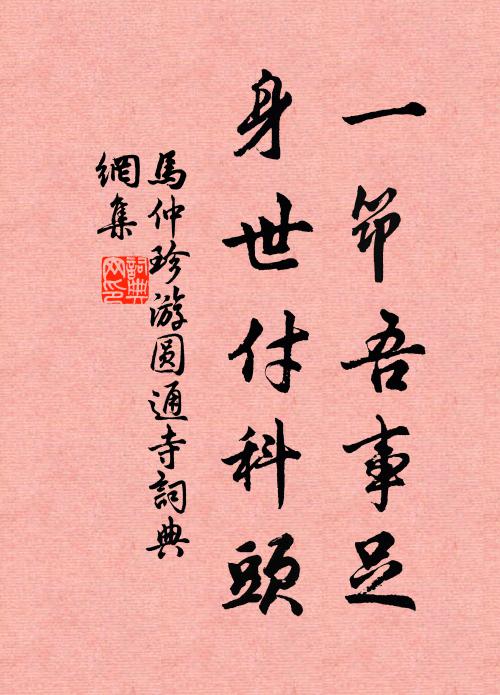 一筇吾事足
身世付科頭
馬仲珍游圆通寺詞典
網集
詞典網印